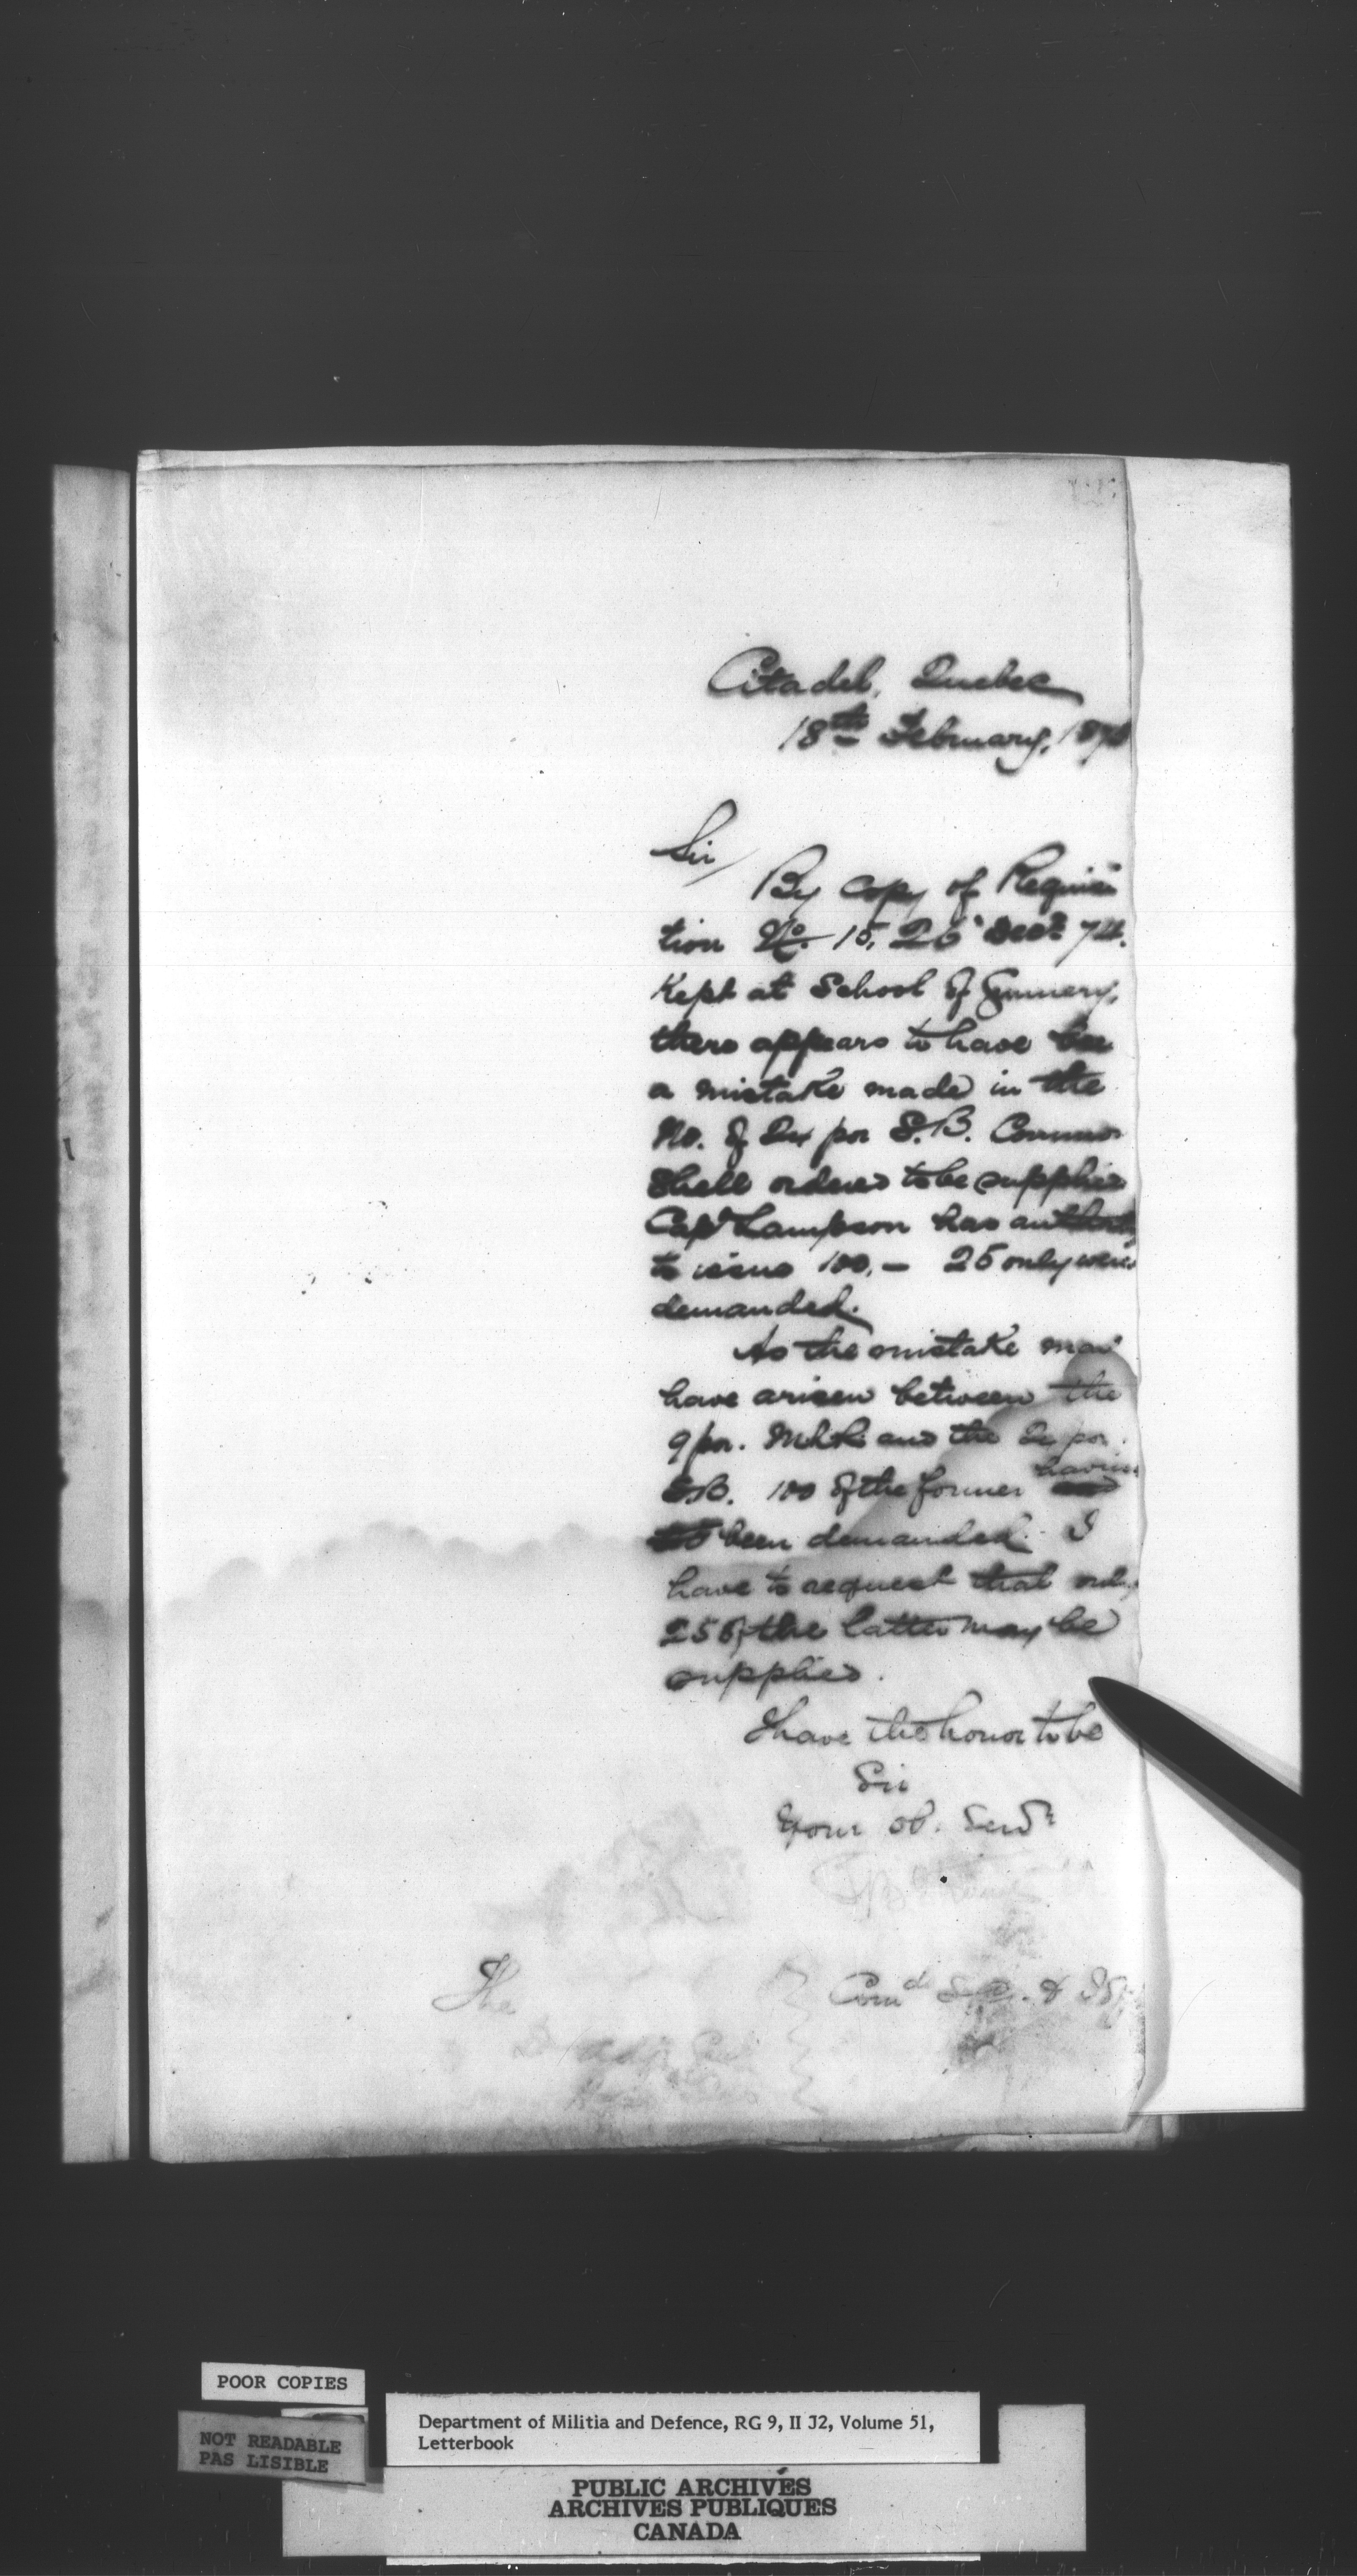 Citadel, Quebec
18th February, 187
Sir
By copy of Requisi
tion No. 15, 26 Decr 74.
Kept at School of Gunnery,
there appears to have bee
a mistake made in the
No. of 24 por S.B. Common
Shell ordered to be supplied
Capt Lampson has authority
to issue 100, — 25 only were
demanded.
As the mistake may
have arisen between the
9 por. M.L.R. and the 24 por.
S.B. 100 of the former having
been demanded. I
have to request that only
25 of the latter may be
supplied.
I have the honor to be
Sir
Your ob. Servt
The
Comd S.G. &
POOR COPIES
NOT READABLE
PAS LISIBLE
Department of Militia and Defence, RG 9, II J2, Volume 51,
Letterbook
PUBLIC ARCHIVES
ARCHIVES PUBLIQUES
CANADA